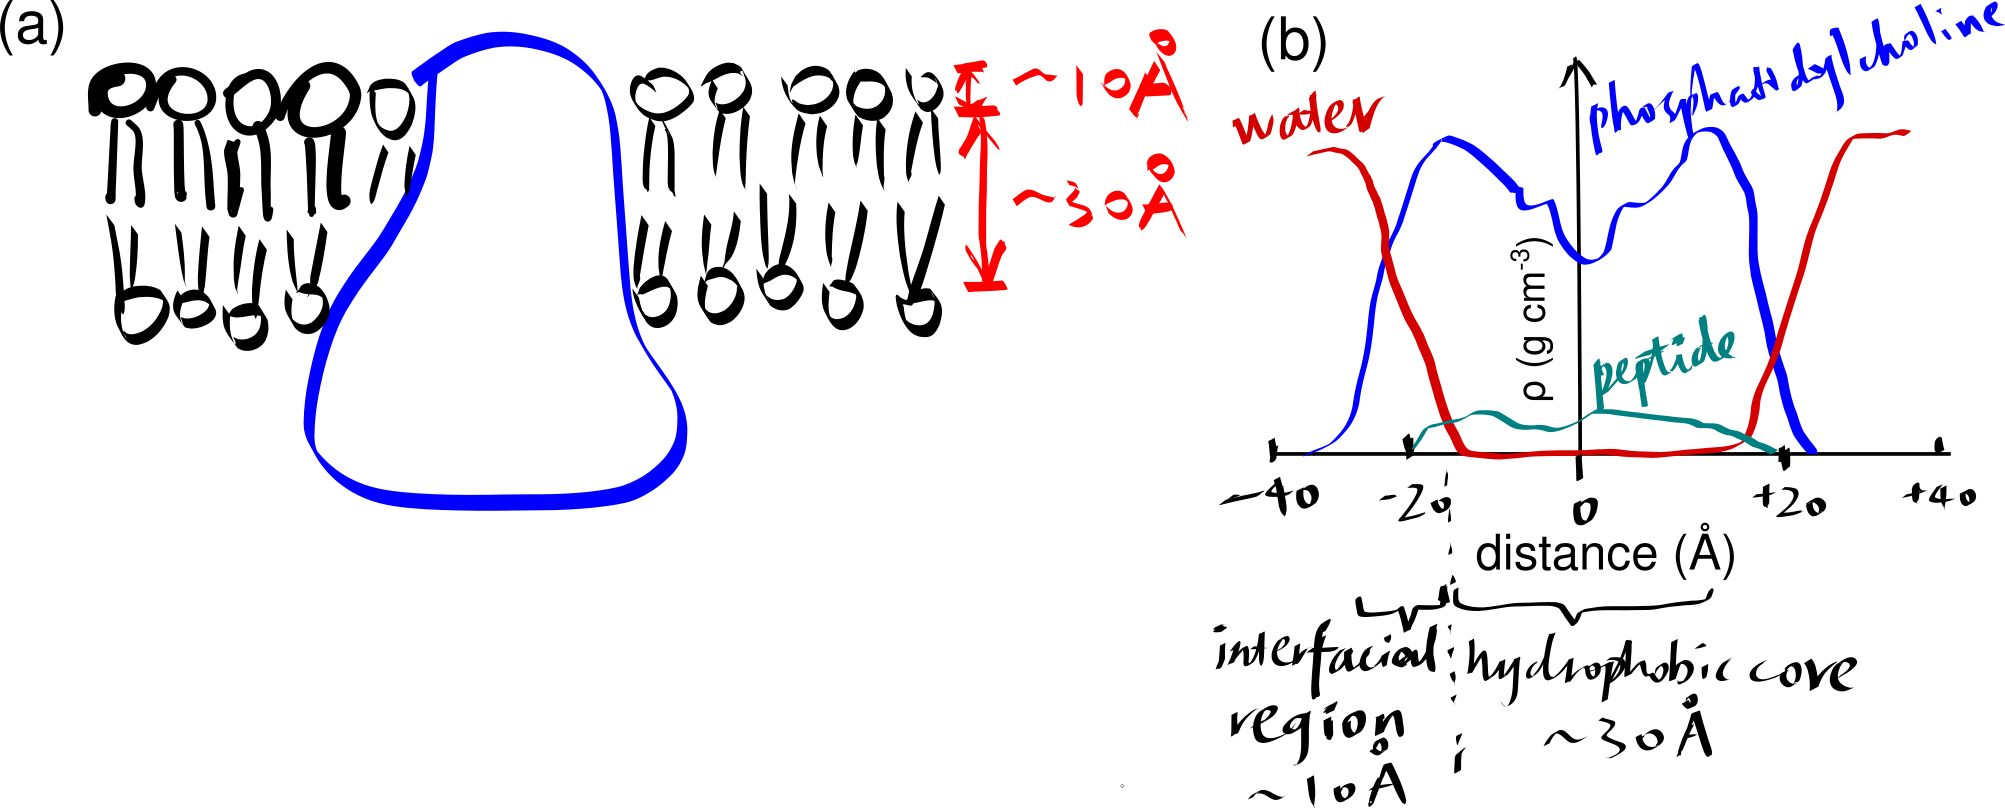 (a)
~10Å
~30Å
(b)
water
phosphatidylcholine
ρ (g cm-3)
peptide
-40
-20
0
+20
+40
distance (Å)
interfacial
region
~10Å
hydrophobic core
~30Å